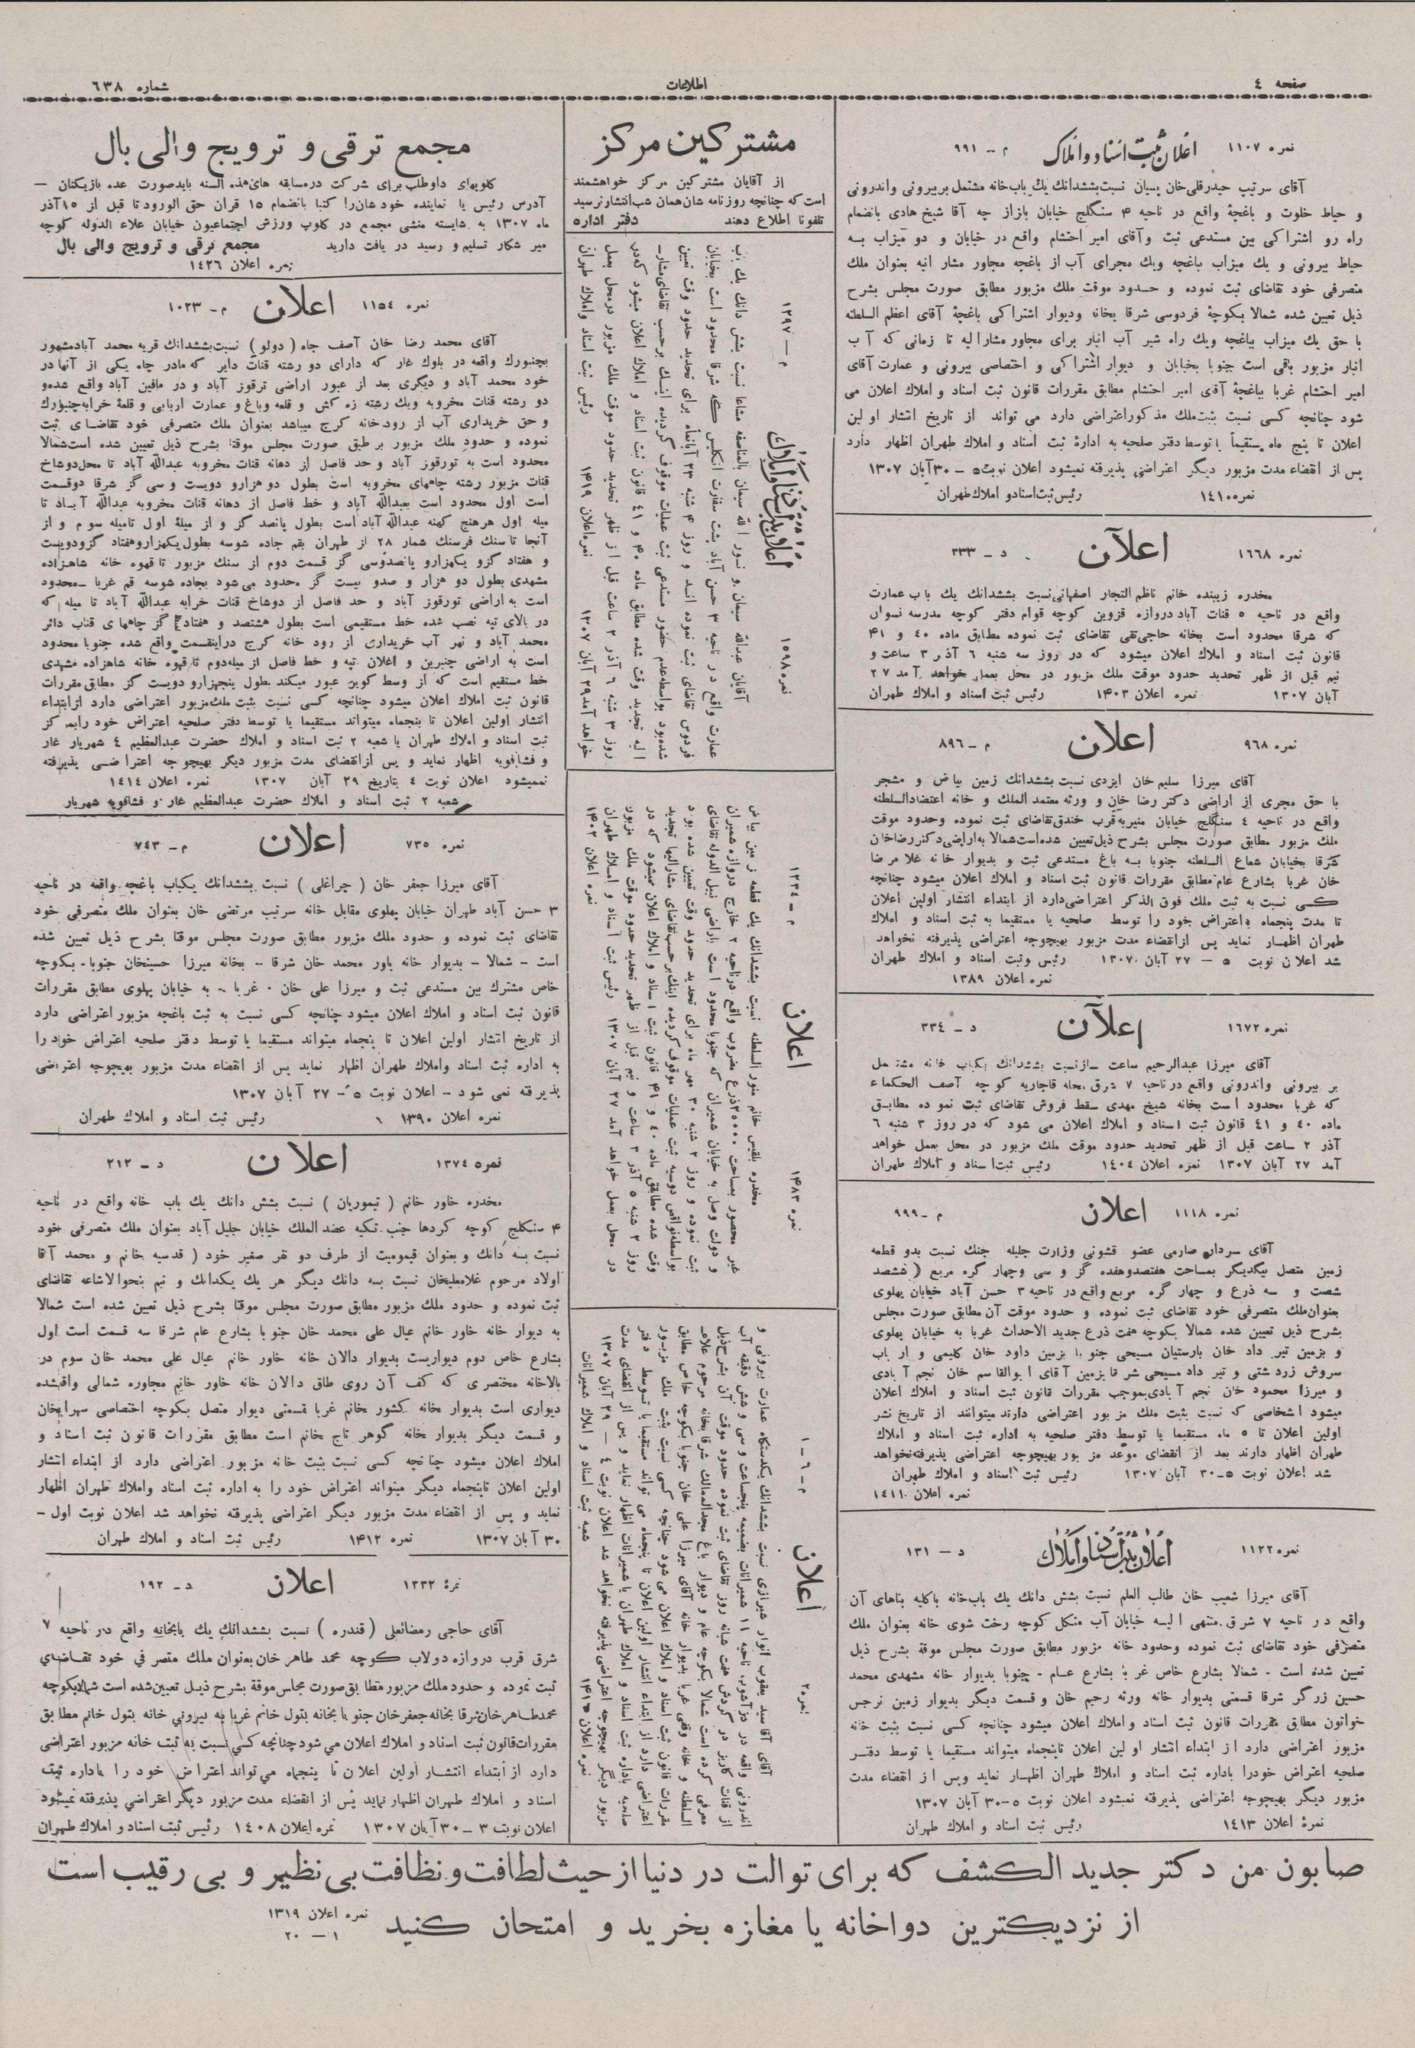 صفحه ٤
اطلاعات
شماره ٦٣٨
نمره ١١٠٧ اعلان ثبت اسناد و املاک م — ٩٩١
آقای سرتیپ حیدرقلی خان پسیان نسبت بششدانك یك باب خانه مشتمل بر بیرونی و اندرونی
و حیاط خلوت و باغچهٔ واقع در ناحیه ۴ سنگلج خیابان بازار چه آقا شیخ هادی بانضمام
راه رو اشتراکی بین مستدعی ثبت و آقای امیر احتشام واقع در خیابان و دو میزاب به
حیاط بیرونی و یك میزاب بباغچه ویك مجرای آب از باغچه مجاور مشار الیه بعنوان ملك
متصرفی خود تقاضای ثبت نموده و حدود موقت ملك مزبور مطابق صورت مجلس بشرح
ذیل تعیین شده شمالا بکوچهٔ فردوسی شرقا بخانه ودیوار اشتراکی باغچهٔ آقای اعظم السلطنه
با حق یك میزاب بباغچه ویك راه شیر آب انبار برای مجاور مشار الیه تا زمانی که آب
انبار مزبور باقی است جنوبا بخیابان و دیوار اشتراکی و اختصاصی بیرونی و عمارت آقای
امیر احتشام غربا بباغچهٔ آقای امیر احتشام مطابق مقررات قانون ثبت اسناد و املاك اعلان می
شود چنانچه کسی نسبت بثبت ملك مذکور اعتراضی دارد می تواند از تاریخ انتشار اولین
اعلان تا پنج ماه مستقیماً یا توسط دفتر صلحیه به ادارهٔ ثبت اسناد و املاك طهران اظهار دارد
پس از انقضاء مدت مزبور دیگر اعتراضی پذیرفته نمیشود اعلان نوبت ٥ — ٣٠ آبان ١٣٠٧
نمره ١٤١٠ رئیس ثبت اسناد و املاك طهران
نمره ١٦٦٨ اعلان د — ٣٣٣
مخدره زیبنده خانم ناظم التجار اصفهانی نسبت بششدانك یك باب عمارت
واقع در ناحیه ٥ قنات آباد دروازه قزوین کوچه قوام دفتر کوچه مدرسه نسوان
که شرقا محدود است بخانه حاجی تقی تقاضای ثبت نموده مطابق ماده ٤٠ و ٤١
قانون ثبت اسناد و املاك اعلان میشود که در روز سه شنبه ٦ آذر ٣ ساعت و
نیم قبل از ظهر تحدید حدود موقت ملك مزبور در محل بعمل خواهد آمد ٢٧
آبان ١٣٠٧ نمره اعلان ١٤٠٣ رئیس ثبت اسناد و املاك طهران
نمره ٩٦٨ اعلان م — ٨٩٦
آقای میرزا سلیم خان ایزدی نسبت بششدانك زمین بیاض و مشجر
با حق مجری از اراضی دکتر رضا خان و ورثه معتمد الملك و خانه اعتضاد السلطنه
واقع در ناحیه ٤ سنگلج خیابان منیریه قرب خندق تقاضای ثبت نموده وحدود موقت
ملك مزبور مطابق صورت مجلس بشرح ذیل تعیین شده است شمالا به اراضی دکتر رضاخان
شرقا بخیابان شعاع السلطنه جنوبا به باغ مستدعی ثبت و بدیوار خانه غلامرضا
خان غربا بشارع عام مطابق مقررات قانون ثبت اسناد و املاك اعلان میشود چنانچه
کسی نسبت به ثبت ملك فوق الذکر اعتراضی دارد از ابتداء انتشار اولین اعلان
تا مدت پنجماه اعتراض خود را توسط صلحیه یا مستقیما به ثبت اسناد و املاك
طهران اظهار نماید پس از انقضاء مدت مزبور بهیچوجه اعتراضی پذیرفته نخواهد
شد اعلان نوبت ٥ — ٢٧ آبان ١٣٠٧ رئیس ثبت اسناد و املاك طهران
نمره اعلان ١٣٨٩
نمره ١٦٧٢ اعلان د — ٣٣٤
آقای میرزا عبدالرحیم ساعت ساز نسبت بششدانك یکباب خانه مشتمل
بر بیرونی واندرونی واقع در ناحیه ٧ شرق محله قاجاریه کوچه آصف الحکماء
که غربا محدود است بخانه شیخ مهدی سقط فروش تقاضای ثبت نموده مطابق
ماده ٤٠ و ٤١ قانون ثبت اسناد و املاك اعلان می شود که در روز ٣ شنبه ٦
آذر ٢ ساعت قبل از ظهر تحدید حدود موقت ملك مزبور در محل بعمل خواهد
آمد ٢٧ آبان ١٣٠٧ نمره اعلان ١٤٠٤ رئیس ثبت اسناد و املاك طهران
نمره ١١١٨ اعلان م — ٩٩٩
آقای سردار صارمی عضو قشونی وزارت جلیله جنك نسبت بدو قطعه
زمین متصل بیکدیگر بمساحت هفتصد وهفده گز و سی وچهار گره مربع (ششصد
شصت و سه ذرع و چهار گره مربع واقع در ناحیه ٣ حسن آباد خیابان پهلوی
بعنوان ملك متصرفی خود تقاضای ثبت نموده و حدود موقت آن مطابق صورت مجلس
بشرح ذیل تعیین شده شمالا بکوچه هفت ذرع جدید الاحداث غربا به خیابان پهلوی
و بزمین تیر داد خان بارستیان مسیحی جنوبا بزمین داود خان کلیمی و ارباب
سروش زردشتی و تیر داد مسیحی شرقا بزمین آقای ابوالقاسم خان نجم آبادی
و میرزا محمود خان نجم آبادی بموجب مقررات قانون ثبت اسناد و املاك اعلان
میشود اشخاصی که نسبت بثبت ملك مزبور اعتراضی دارند میتوانند از تاریخ نشر
اولین اعلان تا ٥ ماه مستقیما یا توسط دفتر صلحیه به اداره ثبت اسناد و املاك
طهران اظهار دارند بعد از انقضای موعد مزبور بهیچوجه اعتراضی پذیرفته نخواهد
شد اعلان نوبت ٥ — ٣٠ آبان ١٣٠٧ رئیس ثبت اسناد و املاك طهران
نمره اعلان ١٤١١
نمره ١١٢٢ اعلان ثبت اسناد و املاک د — ١٣١
آقای میرزا شعیب خان طالب العلم نسبت بشش دانك یك بابخانه باکلیه بناهای آن
واقع در ناحیه ٧ شرق منتهی الیه خیابان آب منگل کوچه رخت شوی خانه بعنوان ملك
متصرفی خود تقاضای ثبت نموده وحدود خانه مزبور مطابق صورت مجلس موقة بشرح ذیل
تعیین شده است - شمالا بشارع خاص غربا بشارع عام - جنوبا بدیوار خانه مشهدی محمد
حسین زرگر شرقا قسمتی بدیوار خانه ورثه رحیم خان و قسمت دیگر بدیوار زمین نرجس
خواتون مطابق مقررات قانون ثبت اسناد و املاك اعلان میشود چنانچه کسی نسبت بثبت خانه
مزبور اعتراضی دارد از ابتداء انتشار اولین اعلان تاپنجماه میتواند مستقیما یا توسط دفتر
صلحیه اعتراض خودرا باداره ثبت اسناد و املاك طهران اظهار نماید وپس از انقضاء مدت
مزبور دیگر بهیچوجه اعتراضی پذیرفته نمیشود اعلان نوبت ٥ — ٣٠ آبان ١٣٠٧
نمرهٔ اعلان ١٤١٣ رئیس ثبت اسناد و املاك طهران
مشترکین مرکز
از آقایان مشترکین مرکز خواهشمند
است که چنانچه روزنامه شان همان شب انتشار نرسید
تلفونا اطلاع دهند دفتر اداره
نمره ١٥٩٨ اعلان ثبت اسناد و املاک م — ١٢٩٧
آقایان عبدالله سیمان و نور الله سیمان بالمناصفه مشاعا نسبت بشش دانك یك باب
عمارت واقع در ناحیه ٣ حسن آباد پشت سفارت انگلیس که شرقا محدود است بخیابان
فردوس تقاضای ثبت نموده اند و روز ٤ شنبه ٢٣ آبانماه برای تحدید حدود وقت تعیین
شده بود بواسطه عدم حضور مستدعی ثبت عملیات موقوف گردیده اینك بر حسب تقاضای مشار
الیه تجدید وقت شده مطابق ماده ٤٠ و ٤١ قانون ثبت اسناد و املاك اعلان میشود که در
روز ٣ شنبه ٦ آذر ٢ ساعت قبل از ظهر تحدید حدود موقت ملك مزبور در محل بعمل
خواهد آمد ٢٩ آبان ١٣٠٧ نمره اعلان ١٤١٩ رئیس ثبت اسناد واملاك طهران
نمره ١٤٨٣ اعلان م — ١٢٣٤
مخدره بلقیس خانم منور السلطنه نسبت بششدانك یك قطعه زمین بیاض
غیر محصور بمساحت ٢٥٠٠٠ ذرع مضروب واقع در ناحیه ٢ خارج دروازه شمیران
و دولت وصل به خیابان شمیران که جنوبا محدود است باراضی نبیل الدوله تقاضای
ثبت نموده و روز ٢ شنبه ٣٠ مهر ماه برای تحدید حدود وقت تعیین شده بود
بواسطه نواقص دوسیه ثبت عملیات موقوف گردیده اینك بر حسب تقاضای مشارالیها تجدید
وقت شده مطابق ماده ٤٠ و ٤١ قانون ثبت اسناد و املاك اعلان میشود که در
روز ٢ شنبه ٥ آذر ٣ ساعت و نیم قبل از ظهر تحدید حدود موقت ملك مزبور
در محل بعمل خواهد آمد ٢٧ آبان ١٣٠٧ رئیس ثبت اسناد و املاك طهران
نمره اعلان ١٤٠٢
نمره ٢ اعلان م — ٦ — ١
آقای آقا سید یعقوب انوار شیرازی نسبت بششدانك یکدستگاه عمارت بیرونی و
اندرونی واقعه در دزآشوب ناحیه ١١ شمیرانات بضمیمه پنجساعت وسی و شش دقیقه آب
از قنات کاریز در گردش هفت شبانه روز تقاضای ثبت نموده حدود موقت آن بشرح ذیل
معرفی کرده است شمالا بکوچه عام و دیوار باغ مجدالممالك شرقا بخانه مرحوم علاء
السلطنه و خانه وقفی غربا بدیوار خانه آقای میرزا علی خان جنوبا بکوچه خاص مطابق
مقررات قانون ثبت اسناد و املاك اعلان می شود چنانچه کسی نسبت بثبت ملك مزبور
اعتراضی دارد از ابتداء انتشار اولین اعلان تا پنجماه می تواند مستقیما یا توسط دفتر
صلحیه باداره ثبت اسناد و املاك طهران یا شمیرانات اظهار نماید و پس از انقضای مدت
مزبور دیگر بهیچوجه اعتراضی پذیرفته نخواهد شد اعلان نوبت ٤ — ٢٩ آبان ١٣٠٧
نمره اعلان ١٤١٦ شعبه ثبت اسناد و املاك شمیرانات
مجمع ترقی و ترویج والی بال
کلوپهای داوطلب برای شرکت در مسابقه های هذه السنه باید صورت عده بازیکنان —
آدرس رئیس یا نماینده خودشان را کتبا بانضمام ١٥ قران حق الورود تا قبل از ١٥ آذر
ماه ١٣٠٧ به شایسته منشی مجمع در کلوپ ورزش اجتماعیون خیابان علاء الدوله کوچه
میر شکار تسلیم و رسید در یافت دارید مجمع ترقی و ترویج والی بال
نمره اعلان ١٤٢٦
نمره ١١٥٤ اعلان م — ١٠٢٣
آقای محمد رضا خان آصف جاه (دولو) نسبت بششدانك قریه محمد آباد مشهور
بچنبورك واقعه در بلوك غار که دارای دو رشته قنات دایر که مادر چاه یکی از آنها در
خود محمد آباد و دیگری بعد از عبور اراضی ترقوز آباد و در مافین آباد واقع شده و
دو رشته قنات مخروبه ویك رشته زه کش و قلعه وباغ و عمارت اربابی و قلعهٔ خرابه چنبورك
و حق خریداری آب از رودخانه کرج میباشد بعنوان ملك متصرفی خود تقاضای ثبت
نموده و حدود ملك مزبور بر طبق صورت مجلس موقتا بشرح ذیل تعیین شده است شمالا
محدود است به تورقوز آباد و حد فاصل از دهانه قنات مخروبه عبدالله آباد تا محل دوشاخ
قنات مزبور رشته چاههای مخروبه است بطول دو هزارو دویست و سی گز شرقا دو قسمت
است اول محدود است بعبدالله آباد و خط فاصل از دهانه قنات مخروبه عبدالله آباد تا
میله اول هرهنج کهنه عبدالله آباد است بطول پانصد گز و از میلهٔ اول تا میله سوم و از
آنجا تا سنك فرسنك شمار ٢٨ از طهران بقم جاده شوسه بطول یکهزار وهفتاد گز ودویست
و هفتاد گز و یکهزارو پانصد وسی گز قسمت دوم از سنك مزبور تا قهوه خانه شاهزاده
مشهدی بطول دو هزار و صدو بیست گز محدود می شود بجاده شوسه قم غربا — محدود
است به اراضی تورقوز آباد و حد فاصل از دوشاخ قنات خرابه عبدالله آباد تا میله که
در بالای تپه نصب شده خط مستقیمی است بطول هشتصد و هفتاد گز چاههای قناب دائر
محمد آباد و نهر آب خریداری از رود خانه کرج دراینقسمت واقع شده جنوبا محدود
است به اراضی چنبرین و اغلان تپه و خط فاصل از میله دوم تا قهوه خانه شاهزاده مشهدی
خط مستقیم است که از وسط کویر عبور میکند بطول پنجهزارو دویست گز مطابق مقررات
قانون ثبت املاك اعلان میشود چنانچه کسی نسبت بثبت ملك مزبور اعتراضی دارد از ابتداء
انتشار اولین اعلان تا پنجماه میتواند مستقیما یا توسط دفتر صلحیه اعتراض خود رابمرکز
ثبت اسناد و املاك طهران یا شعبه ٢ ثبت اسناد و املاك حضرت عبدالعظیم ٤ شهریار غار
و فشافویه اظهار نماید و پس از انقضای مدت مزبور دیگر بهیچوجه اعتراضی پذیرفته
نمیشود اعلان نوبت ٤ بتاریخ ٢٩ آبان ١٣٠٧ نمره اعلان ١٤١٤
شعبه ٢ ثبت اسناد و املاك حضرت عبدالعظیم غار و فشافویه شهریار
نمره ٧٣٥ اعلان م — ٧٤٣
آقای میرزا جعفر خان (چراغلی) نسبت بششدانك یکباب باغچه واقعه در ناحیه
٣ حسن آباد طهران خیابان پهلوی مقابل خانه سرتیپ مرتضی خان بعنوان ملك متصرفی خود
تقاضای ثبت نموده و حدود ملك مزبور مطابق صورت مجلس موقتا بشرح ذیل تعیین شده
است — شمالا — بدیوار خانه یاور محمد خان شرقا — بخانه میرزا حسینخان جنوبا — بکوچه
خاص مشترك بین مستدعی ثبت و میرزا علی خان ٠ غربا — به خیابان پهلوی مطابق مقررات
قانون ثبت اسناد و املاك اعلان میشود چنانچه کسی نسبت به ثبت باغچه مزبور اعتراضی دارد
از تاریخ انتشار اولین اعلان تا پنجماه میتواند مستقیما یا توسط دفتر صلحیه اعتراض خود را
به اداره ثبت اسناد واملاك طهران اظهار نماید پس از انقضاء مدت مزبور بهیچوجه اعتراضی
پذیرفته نمی شود — اعلان نوبت ٥ — ٢٧ آبان ١٣٠٧
نمره اعلان ١٣٩٠ رئیس ثبت اسناد و املاك طهران
نمره ١٣٧٤ اعلان د — ٢١٢
مخدره خاور خانم (تیموریان) نسبت بشش دانك یك باب خانه واقع در ناحیه
۴ سنگلج کوچه کردها جنب تکیه عضد الملك خیابان جلیل آباد بعنوان ملك متصرفی خود
نسبت بسه دانك و بعنوان قیمومیت از طرف دو نفر صغیر خود (قدسیه خانم و محمد آقا
اولاد مرحوم غلامعلیخان نسبت بسه دانك دیگر هر یك یکدانك و نیم بنحوالاشاعه تقاضای
ثبت نموده و حدود ملك مزبور مطابق صورت مجلس موقتا بشرح ذیل تعیین شده است شمالا
به دیوار خانه خاور خانم عیال علی محمد خان جنوبا بشارع عام شرقا سه قسمت است اول
بشارع خاص دوم دیواریست بدیوار دالان خانه خاور خانم عیال علی محمد خان سوم در
بالاخانه مختصری که کف آن روی طاق دالان خانه خاور خانم مجاوره شمالی واقعشده
دیواری است بدیوار خانه کشور خانم غربا قسمتی دیوار متصل بکوچه اختصاصی سهرابخان
و قسمت دیگر بدیوار خانه گوهر تاج خانم است مطابق مقررات قانون ثبت اسناد و
املاك اعلان میشود چنانچه کسی نسبت بثبت خانه مزبور اعتراضی دارد از ابتداء انتشار
اولین اعلان تاپنجماه دیگر میتواند اعتراض خود را به اداره ثبت اسناد واملاك طهران اظهار
نماید و پس از انقضاء مدت مزبور دیگر اعتراضی پذیرفته نخواهد شد اعلان نوبت اول —
٣٠ آبان ١٣٠٧ نمره ١٤١٢ رئیس ثبت اسناد و املاك طهران
نمرهٔ ١٢٣٢ اعلان د — ١٩٢
آقای حاجی رمضانعلی (قندره) نسبت بششدانك یك بابخانه واقع در ناحیه ٧
شرق قرب دروازه دولاب کوچه محمد طاهر خان بعنوان ملك متصرفی خود تقاضای
ثبت نموده و حدود ملك مزبور مطابق صورت مجلس موقة بشرح ذیل تعیین شده است شمالا بکوچه
محمد طاهر خان شرقا بخانه جعفر خان جنوبا بخانه بتول خانم غربا به بیرونی خانه بتول خانم مطابق
مقررات قانون ثبت اسناد و املاك اعلان می شود چنانچه کسی نسبت به ثبت خانه مزبور اعتراضی
دارد از ابتداء انتشار اولین اعلان تا پنجماه می تواند اعتراض خود را باداره ثبت
اسناد و املاك طهران اظهار نماید پس از انقضاء مدت مزبور دیگر اعتراضی پذیرفته نمیشود
اعلان نوبت ٣ — ٣٠ آبان ١٣٠٧ نمره اعلان ١٤٠٨ رئیس ثبت اسناد و املاك طهران
صابون من دکتر جدید الکشف که برای توالت در دنیا از حیث لطافت و نظافت بی نظیر و بی رقیب است
از نزدیکترین دواخانه یا مغازه بخرید و امتحان کنید نمره اعلان ١٣١٩
١ — ٢٠